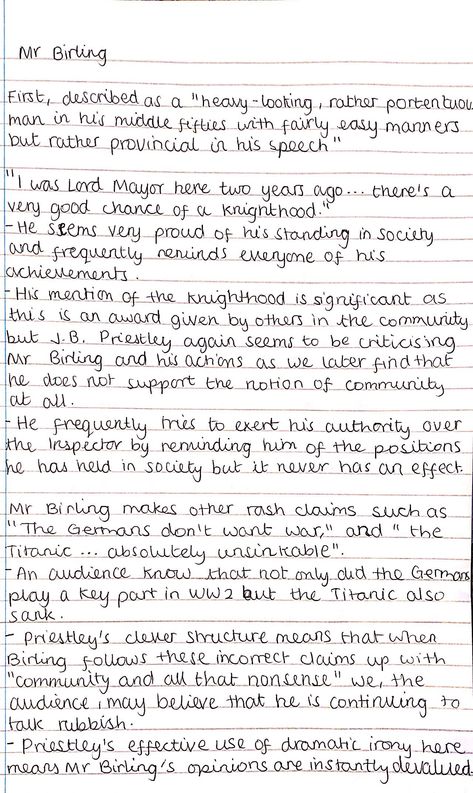 Mr Birling
First, described as a "heavy-looking, rather portentous
man in his middle fifties with fairly easy manners
but rather provincial in his speech"
"I was Lord Mayor here two years ago... there's a
very good chance of a knighthood."
- He seems very proud of his standing in society
and frequently reminds everyone of his
achievements.
- His mention of the knighthood is significant as
this is an award given by others in the community
but J.B. Priestley again seems to be criticising
Mr Birling and his actions as we later find that
he does not support the notion of community
at all.
- He frequently tries to exert his authority over
the Inspector by reminding him of the positions
he has held in society but it never has an effect.
Mr Birling makes other rash claims such as
"The Germans don't want war," and " the
Titanic ... absolutely unsinkable".
- An audience know that not only did the Germans
play a key part in WW2 but the Titanic also
sank.
- Priestley's clever structure means that when
Birling follows these incorrect claims up with
"community and all that nonsense" we, the
audience, may believe that he is continuing to
talk rubbish.
- Priestley's effective use of dramatic irony here
means Mr Birling's opinions are instantly devalued.